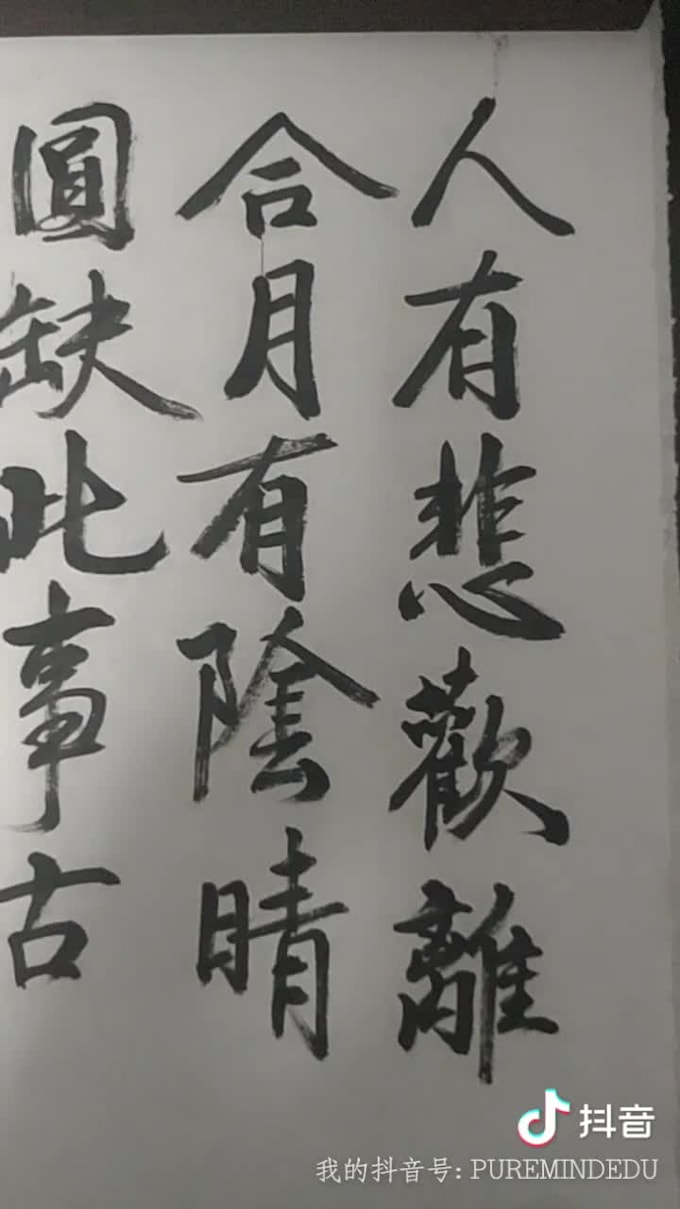 人有悲歡離
合月有陰晴
圓缺此事古
抖音
我的抖音号: PUREMINDEDU